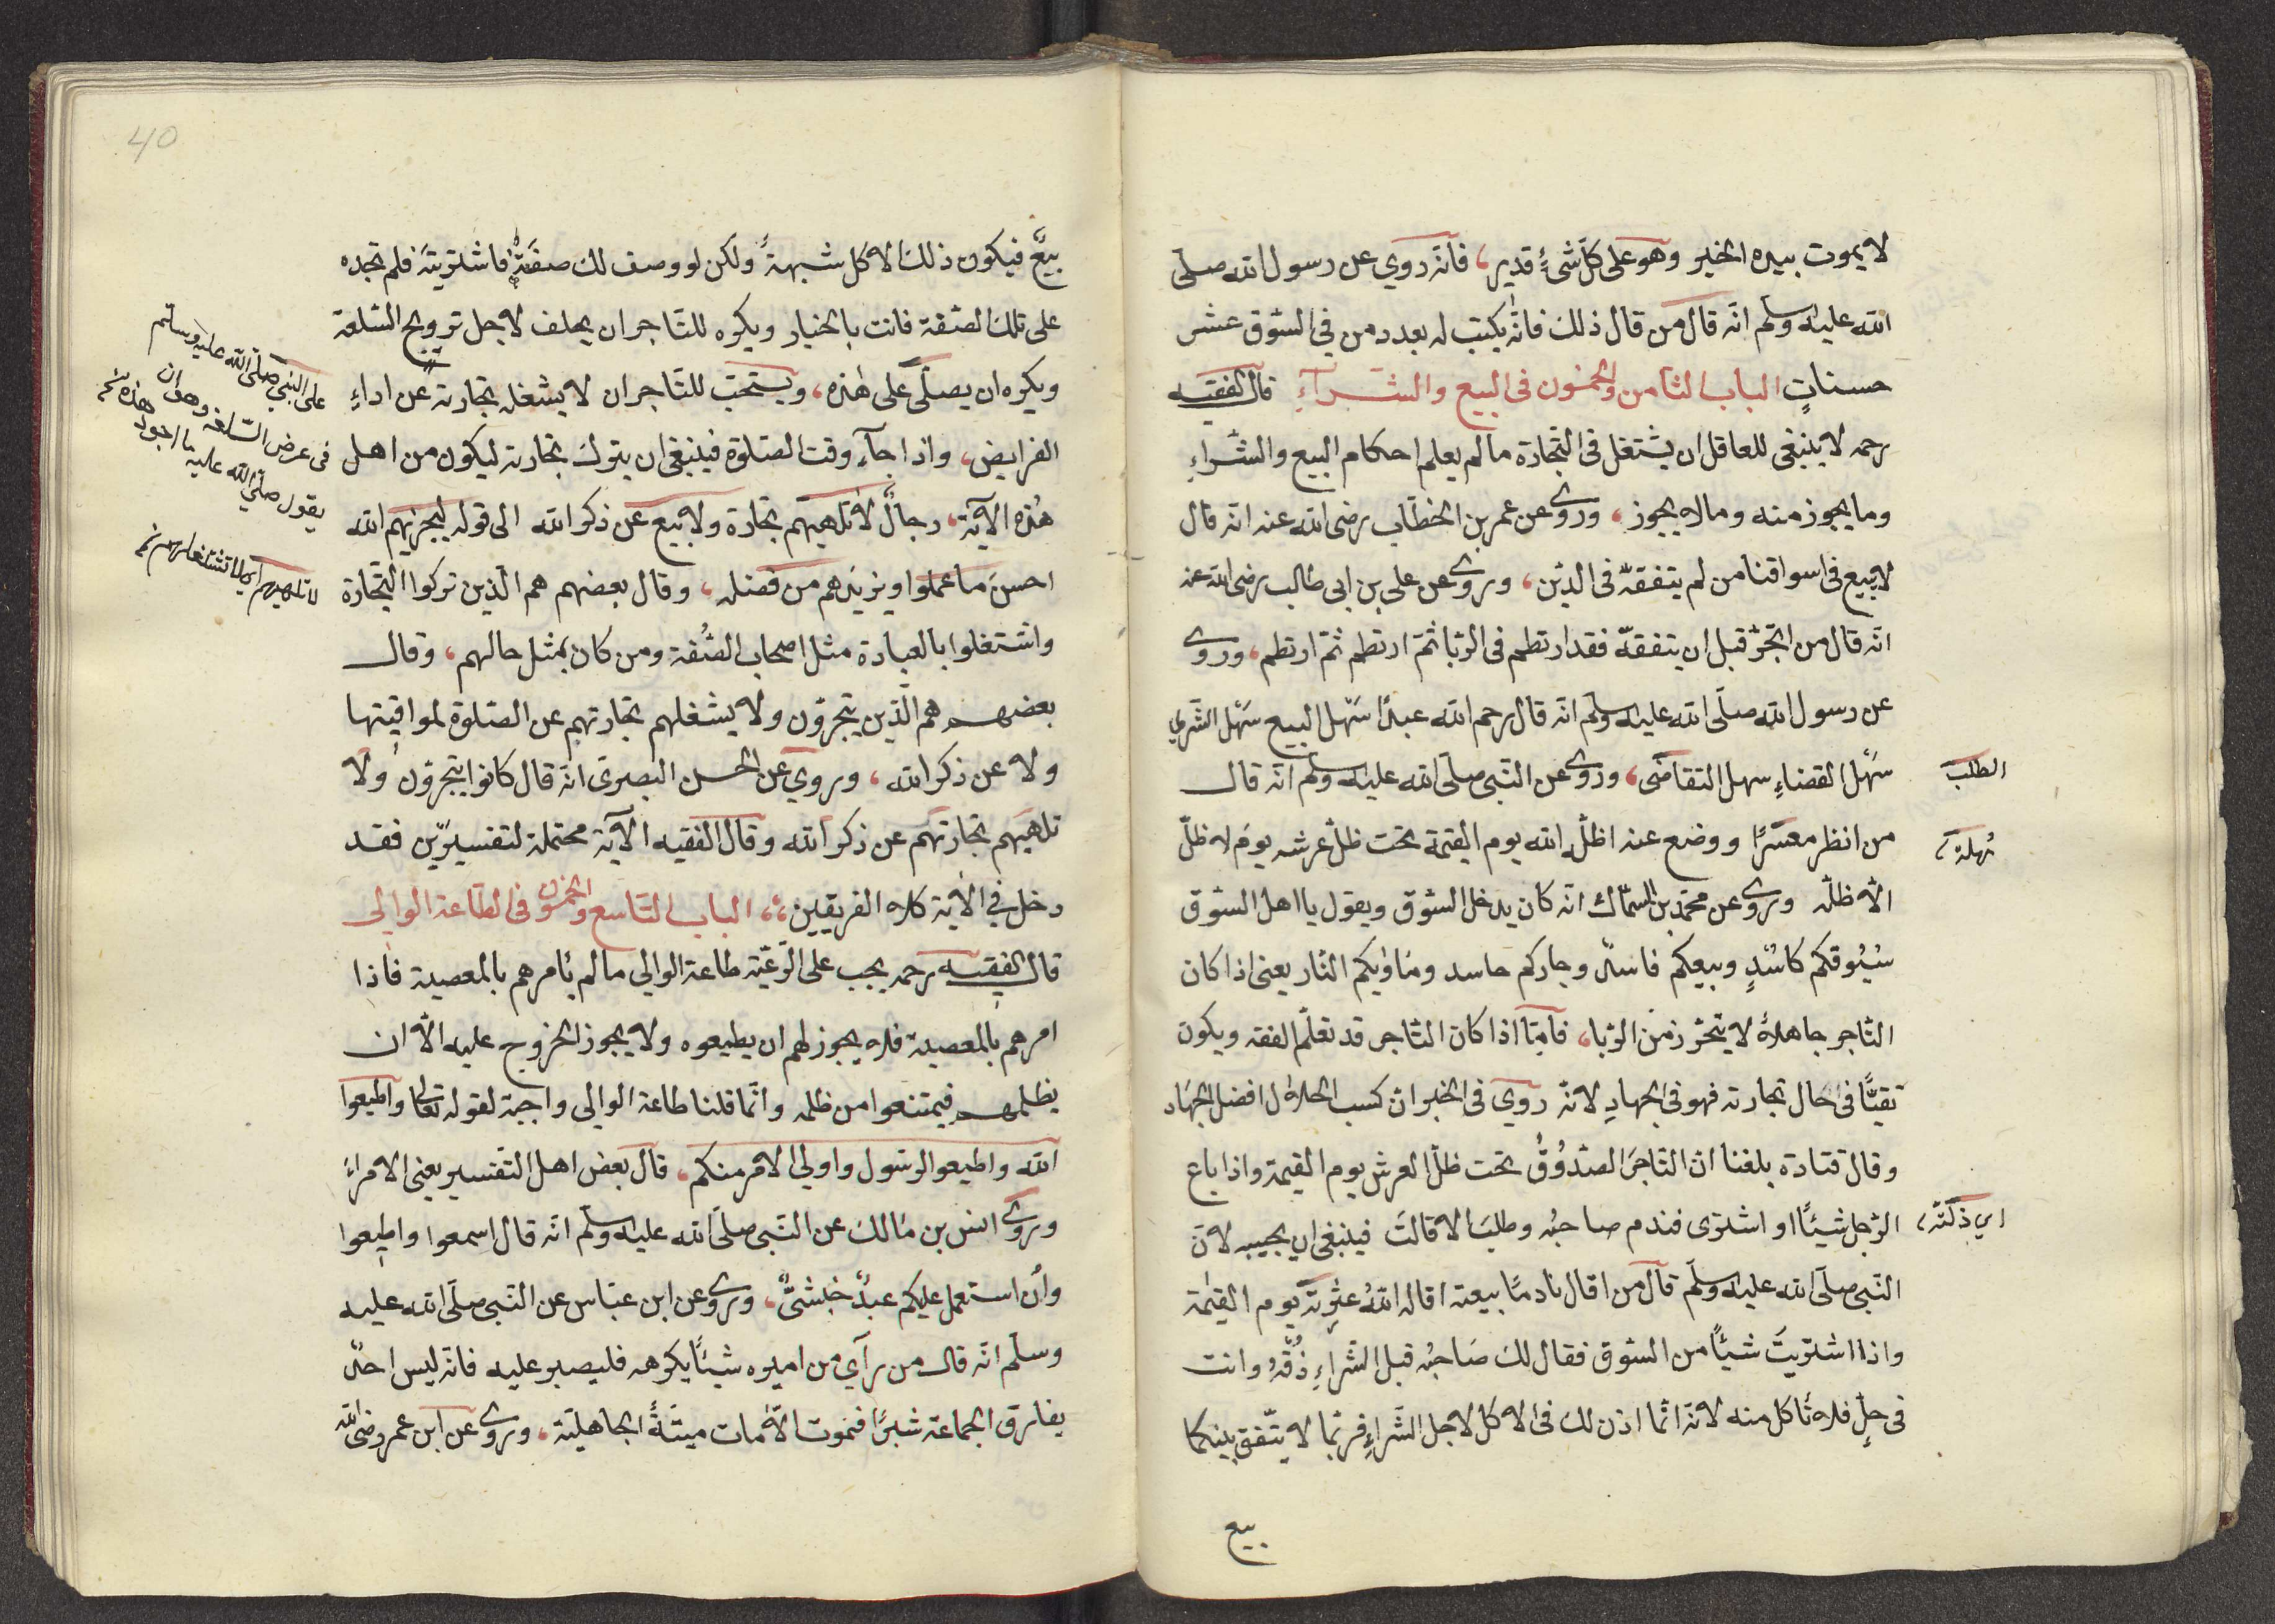 لا يموت بيده الخير وهو على كل شئ قدير، فانّه روي عن رسول الله صلّى
الله عليه وسلم انّه قال من قال ذلك فانّه يكتب له بعدد من في السّوق عشر
حسناتٍ الباب الثامن والخمسون فى البيع والشّرآءِ قال الفقيه
رحمه لا ينبغى للعاقل ان يشتغل فى التّجارة مالم يعلم احكام البيع والشّراءِ
وما يجوز منه وما لا يجوز، وروى عن عمر بن الخطّاب رضى الله عنه انّه قال
لا يبيع فى اسواقنا من لم يتفقّه فى الدّين، وروى عن على بن ابى طالب رضى الله عنه
انّه قال من اتّجر قبل ان يتفقّه فقد ارتطم فى الرّبا ثمّ ارتطم ثمّ ارتطم، وروى
عن رسول الله صلّى الله عليه وسلّم انّه قال رحم الله عبدًا سَهْل البيع سَهْل الشّرى
سَهْل القضاءِ سهل التقاضى، وروى عن النّبى صلّى الله عليه وسلم انّه قال
الطلب
من انظر معسرًا ووضع عنه اظلّه الله يوم القيمة تحت ظلّ عرشه يوم لا ظلّ
مُهلة،
الّا ظلّه وروى عن محمّد بن السّماك انّه كان يدخل السّوق ويقول يا اهل السّوق
سُوُقكم كاسدٍ وبيعكم فاسدٌ وجاركم حاسد ومَاوٰيكم النّار يعنى اذا كان
التّاجر جاهلاً لا يتحرّز من الرّبا، فامّا اذا كان التّاجر قد تعلّم الفقه ويكون
تقيًّا فى حال تجارته فهو فى الجهادِ لانّه روي فى الخبر انّ كسب الحلال افضل الجهاد
وقال قتادة بلغنا انّ التّاجر الصّدُوُقُ تحت ظلّ العرش يوم القيمة واذا باع
الرّجل شيئًا او اشترى فندم صاحبُه وطلبَ الاقالَتَ فينبغى ان يجيبه لانّ
اي ذكته،
النّبى صلّى الله عليه وسلّم قال من اقال نادمًا بيعته اقاله اللهُ عثرته يوم القيٰمة
واذا اشتريتَ شيئًا من السّوق فقال لك صَاحبُه قبل الشّراءِ ذُقْهُ وانت
فى حلٍّ فلا تأكل منه لانّه انّما اذن لك فى الاكل لاجل الشّراءِ فربّما لا يتّفق بينكما
بيع
40
بيعٌ فيكون ذلك الاكل شبهةً ولكن لو وصف لك صفَةً فاشتريتَه فلم تجده
على تلك الصّفة فانت بالخيار ويكره للتّاجر ان يحلف لاجل ترويج السّلعة
ويكره ان يصلّى على هٰذه، ويستحبّ للتّاجر ان لا يشغله تجارته عن اداءِ
على النبيّ صلّى الله عليه وسلّم
فى عرض السّلعة وهو ان
يقول صلّى الله عليه ما اجود هذه
الفرايض، واذا جآء وقت الصّلوة فينبغى ان يترك تجارته ليكون من اهل
هٰذه الآية، رجالٌ لا تلهيهم تجارة ولا بيع عن ذكر الله الى قوله ليجزيهم الله
احسنَ ما عملوا ويزيدهم من فضله، وقال بعضهم هم الّذين تركوا التّجارة
لا تلهيهم اى لا تشغلهم
واشتغلوا بالعبادة مثل اصحاب الصُّفة ومن كان بمثل حالهم، وقال
بعضهم هم الّذين يتّجرون ولا يشغلهم تجارتهم عن الصّلوة لمواقيتها
ولا عن ذكر الله، وروي عن الحسن البصرى انّه قال كانوا يتّجرون ولا
تلهيهم تجارتهم عن ذكر الله وقال الفقيه الآية محتملة لتفسيرين فقد
دخل في الآية كلا الفريقين، الباب التّاسع والخمسون فى الطّاعة الوالى
قال الفقيه رحمه يجب على الرّعيّة طاعة الوالي مالم يامرهم بالمعصية فاذا
امرهم بالمعصية فلا يجوز لهم ان يطيعوه ولا يجوز الخروج عليه الّا ان
يظلمهم فيمتنعوا من ظلمه وانّما قلنا طاعة الوالى واجبة لقوله تعالى واطيعوا
الله واطيعو الرّسول واولى الامر منكم، قال بعض اهل التّفسير يعنى الامراءَ
وروى انس بن مالك عن النّبى صلّى الله عليه وسلّم انّه قال اسمعوا واطيعوا
وأن استعمل عليكم عبدٌ حبشىٌّ، وروى عن ابن عبّاس عن النّبى صلّى الله عليه
وسلّم انّه قال من رآي من اميره شيئًا يكرهه فليصبر عليه فانّه ليس احدٌ
يفارق الجماعة شبرًا فيموت الّا مات ميتَةً الجاهليّة، وروى عن ابن عمر رضى الله